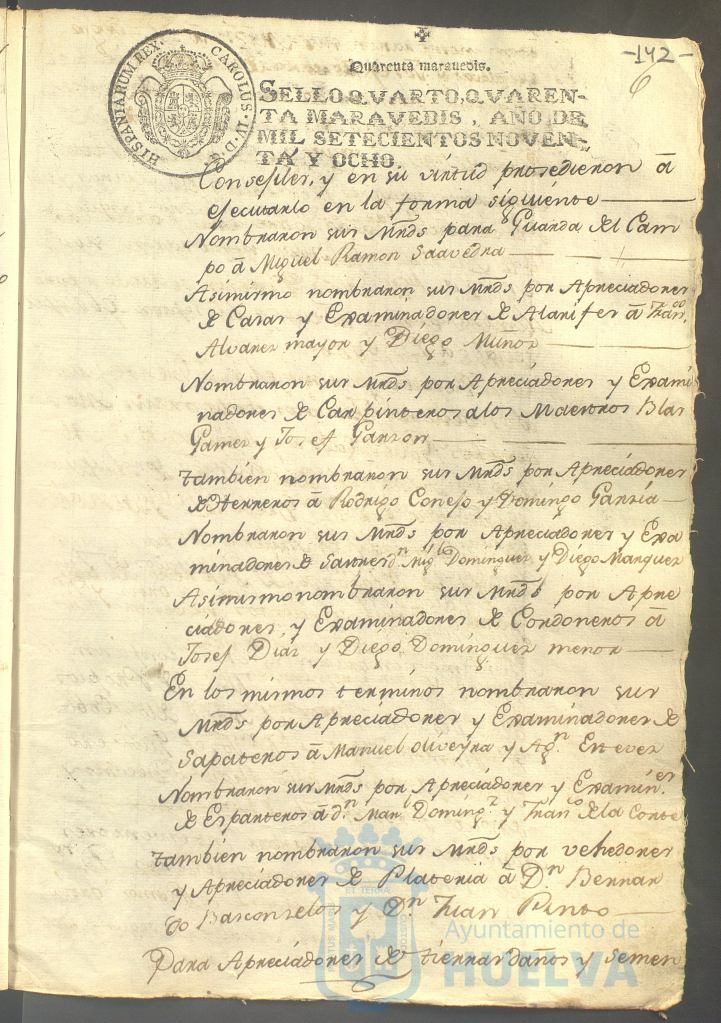 -142-
6
Quarenta maravedis.
HISPANIARUM REX. CAROLUS. IV. D. G.
SELLO QVARTO, QVAREN-
TA MARAVEDIS, AÑO DE
MIL SETECIENTOS NOVEN-
TA Y OCHO.
Consejiles, y en su virtud prosedieron á
ejecutarlo en la forma siguiente
Nombraron sus Mrds para Guarda del Cam
po á Miguel Ramon Saavedra
Asimismo nombraron sus Mrds por Apreciadores
de Casas y Examinadores de Alarifes á Franco.
Alvares mayor y Diego Muños
Nombraron sus Mrds por Apreciadores y Exami
nadores de Carpinteros a los Maestros Blas
Gomes y Josef Garson
tambien nombraron sus Mrds por Apreciadores
de Herreros á Rodrigo Conejo y Domingo Garsia
Nombraron sus Mrds por Apreciadores y Exa
minadores de Sastres dn. Migl Dominguez y Diego Marquez
Asimismo nombraron sus Mrds por Apre
ciadores, y Examinadores de Cordoneros á
Josef Dias y Diego Dominguez menor
En los mismos terminos nombraron sus
Mrds por Apreciadores y Examinadores de
Sapateros á Manuel oliveyra y Agn. Estevez
Nombraron sus Mrds por Apreciadores y Examin.es
de Esparteros á dn. Manl Domingz y Franco de la Corte
tambien nombraron sus Mrds por vehedores
y Apreciadores de Plateria á Dn. Bernar
do Basconselos y Dn. Juan Pinto
Para Apreciadores de tierras daños y semen
Ayuntamiento de
HUELVA